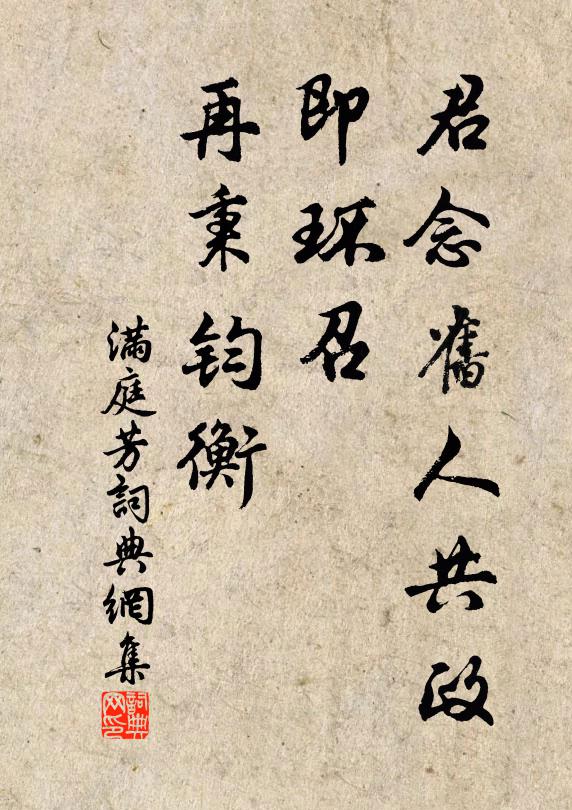 君念舊人共政
即环召
再秉钧衡
滿庭芳詞典網集
詞典网印